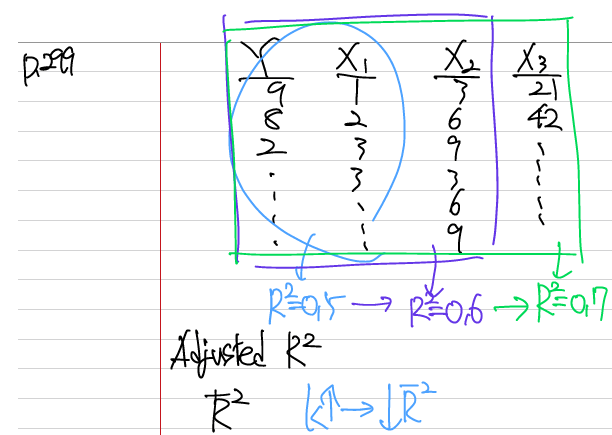 p.299
Y X₁ X₂ X₃
9 1 3 21
8 2 6 42
2 3 9
3 3
6
9
R²=0.5 → R²=0.6 → R²=0.7
Adjusted R²
R̅² k↑→↓R̅²